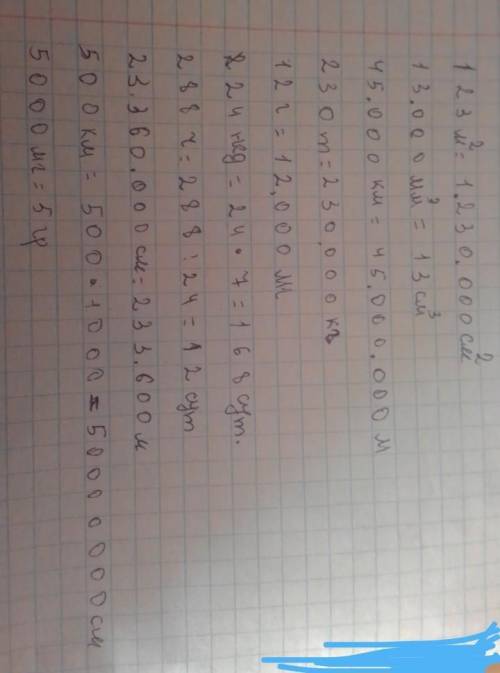 123 м² = 1.230.000 см²
13.000 мм³ = 13 см³
45.000 км = 45.000.000 м
230 т = 230.000 кг
12 г = 12.000 м
24 нед = 24 · 7 = 168 сут.
288 ч = 288 : 24 = 12 сут
23.360.000 см = 233.600 м
500 км = 500 · 1000 = 50000000 см
5000 мг = 5 гр